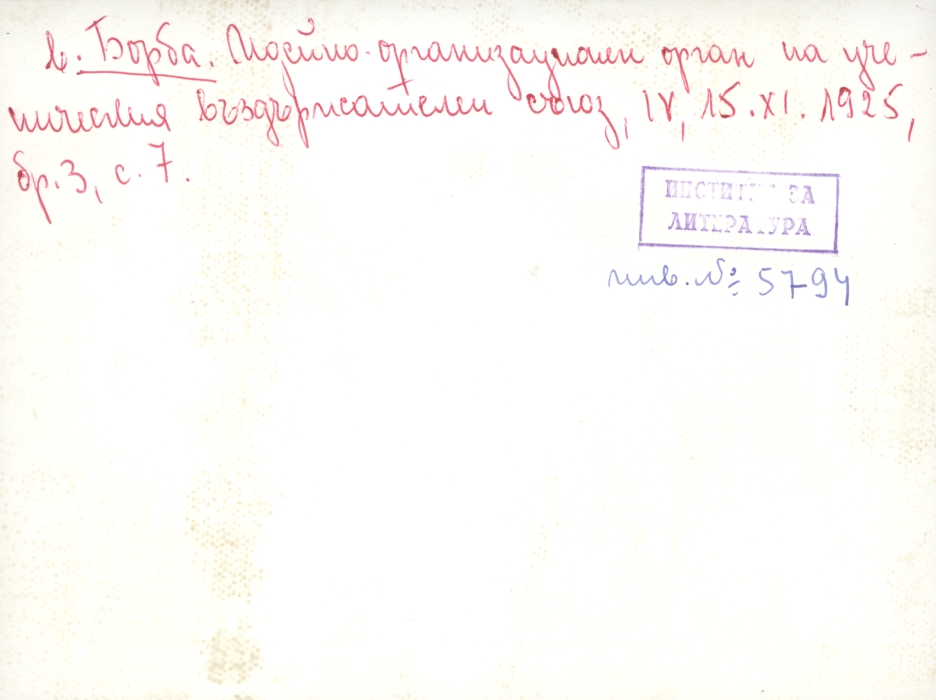 в. Борба. Идейно-организационен орган на уче-
ническия въздържателен съюз, IV, 15.XI.1925,
бр. 3, с. 7.
ИНСТИТУТ ЗА
ЛИТЕРАТУРА
инв. № 5794